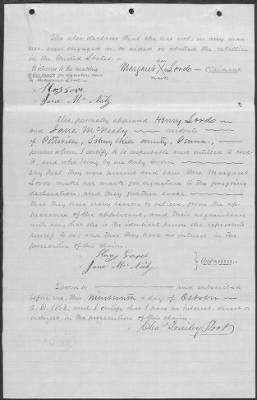 She also declares that she has not, in any man-
ner, been engaged in, or aided or abetted the rebellion
in the United States.
Witness to the making her
Margaret X Lordo - Claimant
mark
of Margaret Lord
Jane Mc
Also, personally appeared Henry Lordo
and Jane Mc residents
of Petersen, County, Penna,
persons whom I certify to be respectable and entitled to cred-
it, and who being by me duly sworn
say that they were present and saw Mrs Margaret
Lordo make her mark for signature to the foregoing
declaration; and they further swear
that they have every reason to believe, from the ap-
pearance of the applicant, and their acquaintance
with her, that she is the identical person she represents
herself to be; and that they have no interest in the
prosecution of this claim.
Jane Mc
Witnesses
Sworn and subscribed
before me, this day of October
A.D. 186 and I certify that I have no interest, direct or
indirect, in the prosecution of this claim.